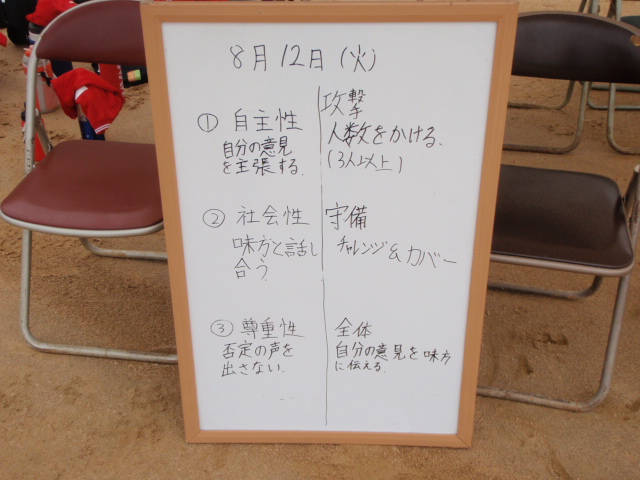 8月12日(火)
① 自主性
自分の意見
を主張する.
② 社会性
味方と話し
合う
③ 尊重性
否定の声を
出さない.
攻撃
人数をかける.
(3人以上)
守備
チャレンジ&カバー
全体
自分の意見を味方
に伝える.